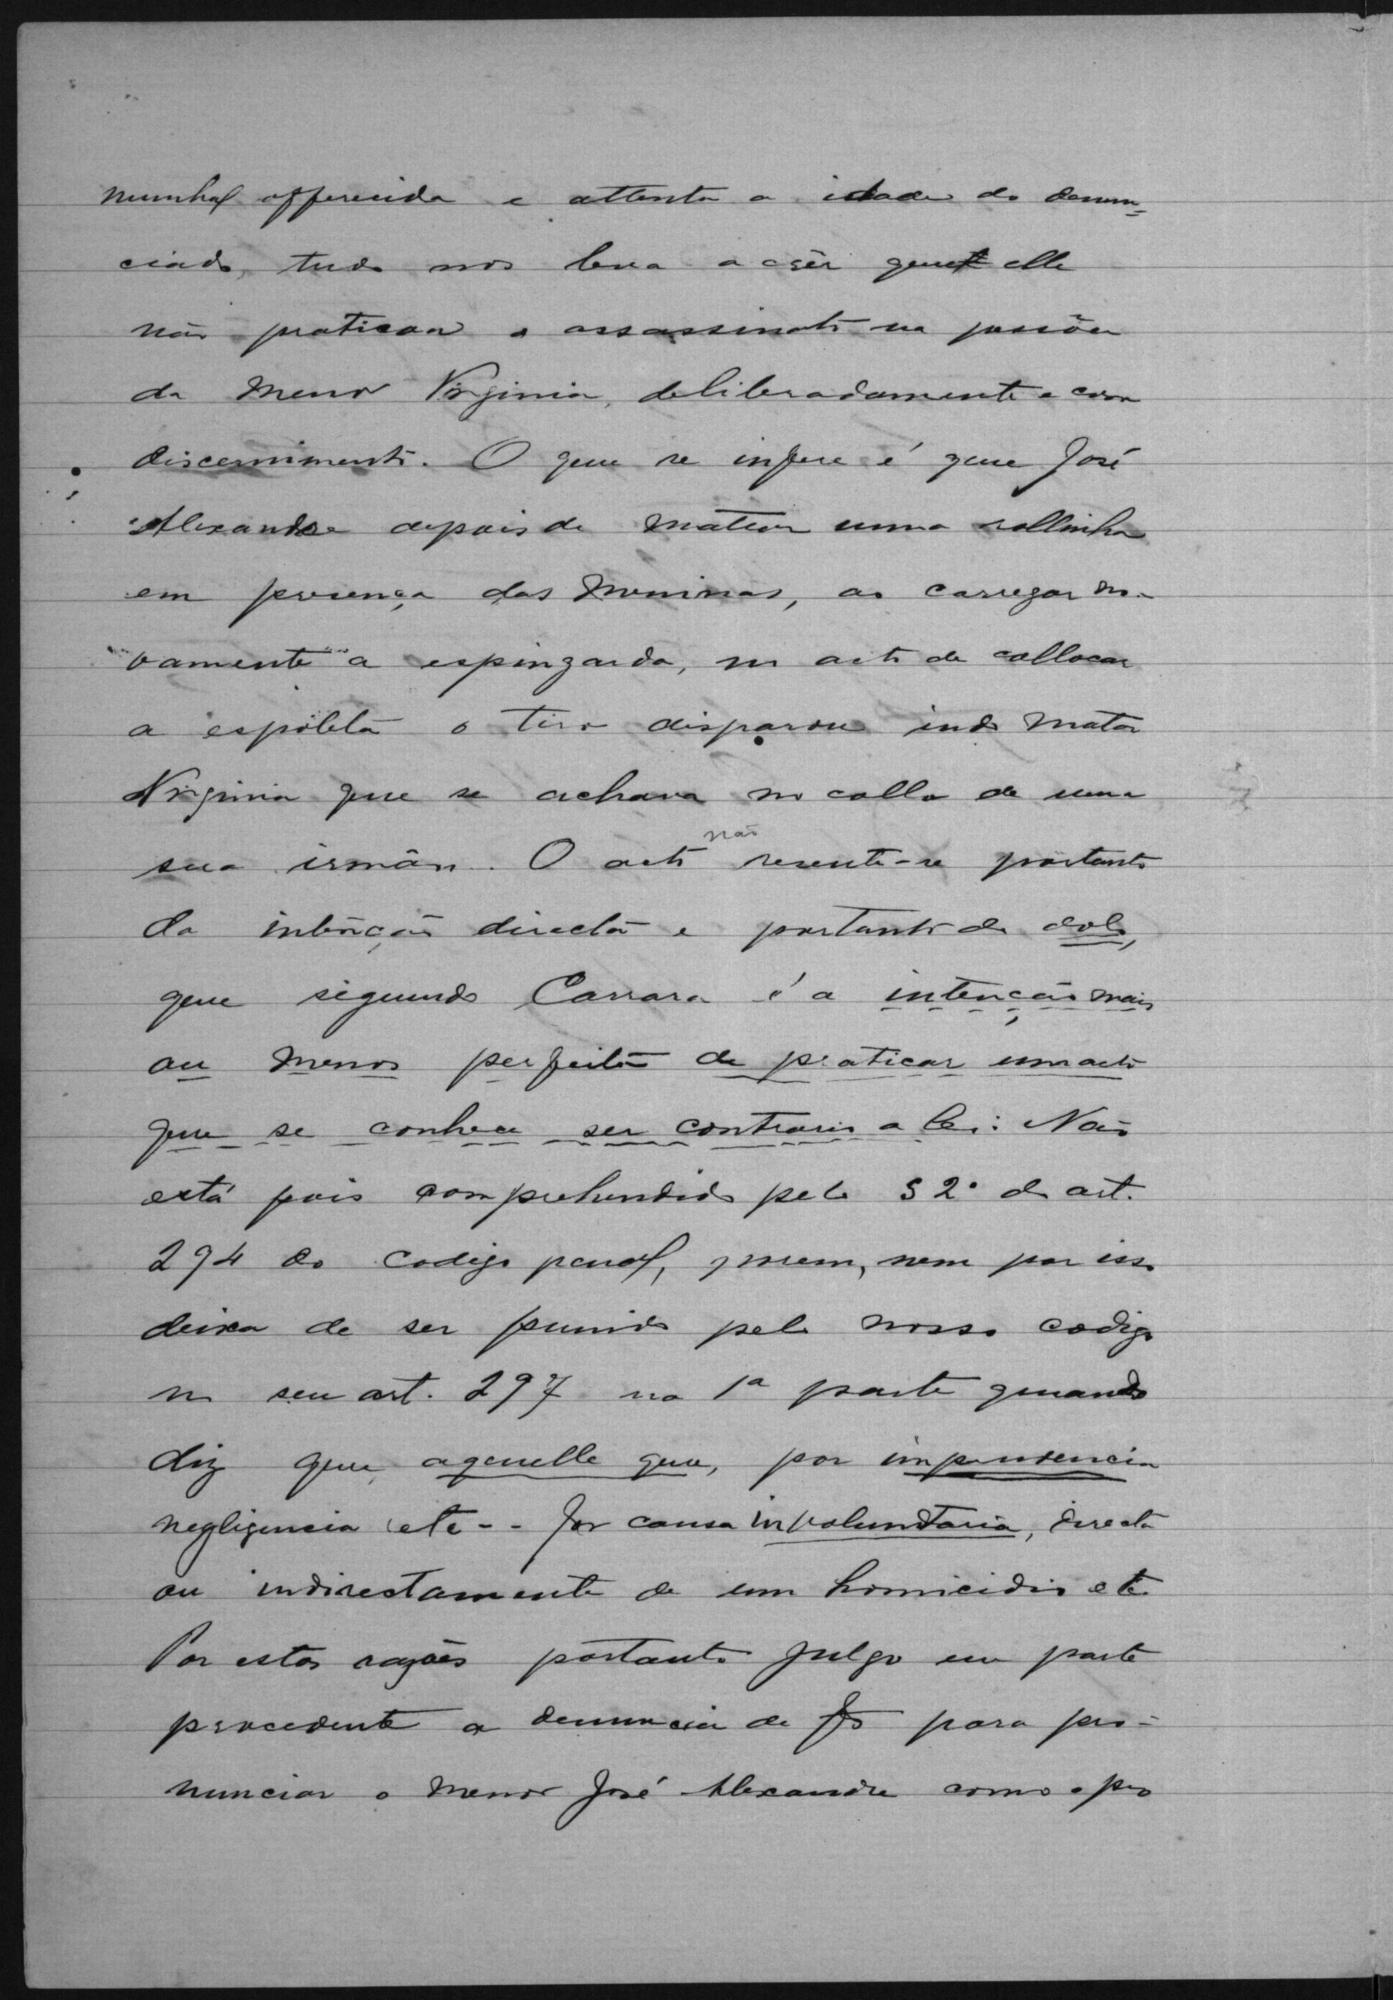 munhal offerecida e attenta a idade do denun-
ciado, tudo nos leva a crêr que elle
não praticou o assassinato na pessôa
da menor Virginia, deliberadamente e com
discernimento. O que se infere é que José
Alexandre depois de matar uma rollinha
em presença das meninas, ao carregar no-
vamente a espingarda, no acto de collocar
a espolêta o tiro disparou indo matar
Virginia que se achava no collo de uma
sua irmãn. O acto não resente-se portanto
da intenção directa e portanto de dolo,
que segundo Carrara é a intenção mais
ou menos perfeita de praticar um acto
que se conhece ser contrario a lei: Não
está pois comprehendido pelo § 2º do art.
294 do codigo penal, porem, nem por isso
deixa de ser punido pelo nosso codigo
no seu art. 297 na 1ª parte quando
diz que aquelle que, por imprudencia
negligencia etc - - for causa involuntaria, directa
ou indirectamente de um homicidio etc
Por estas razões portanto julgo em parte
procedente a denuncia de fs para pro-
nunciar o menor José Alexandre como o pro